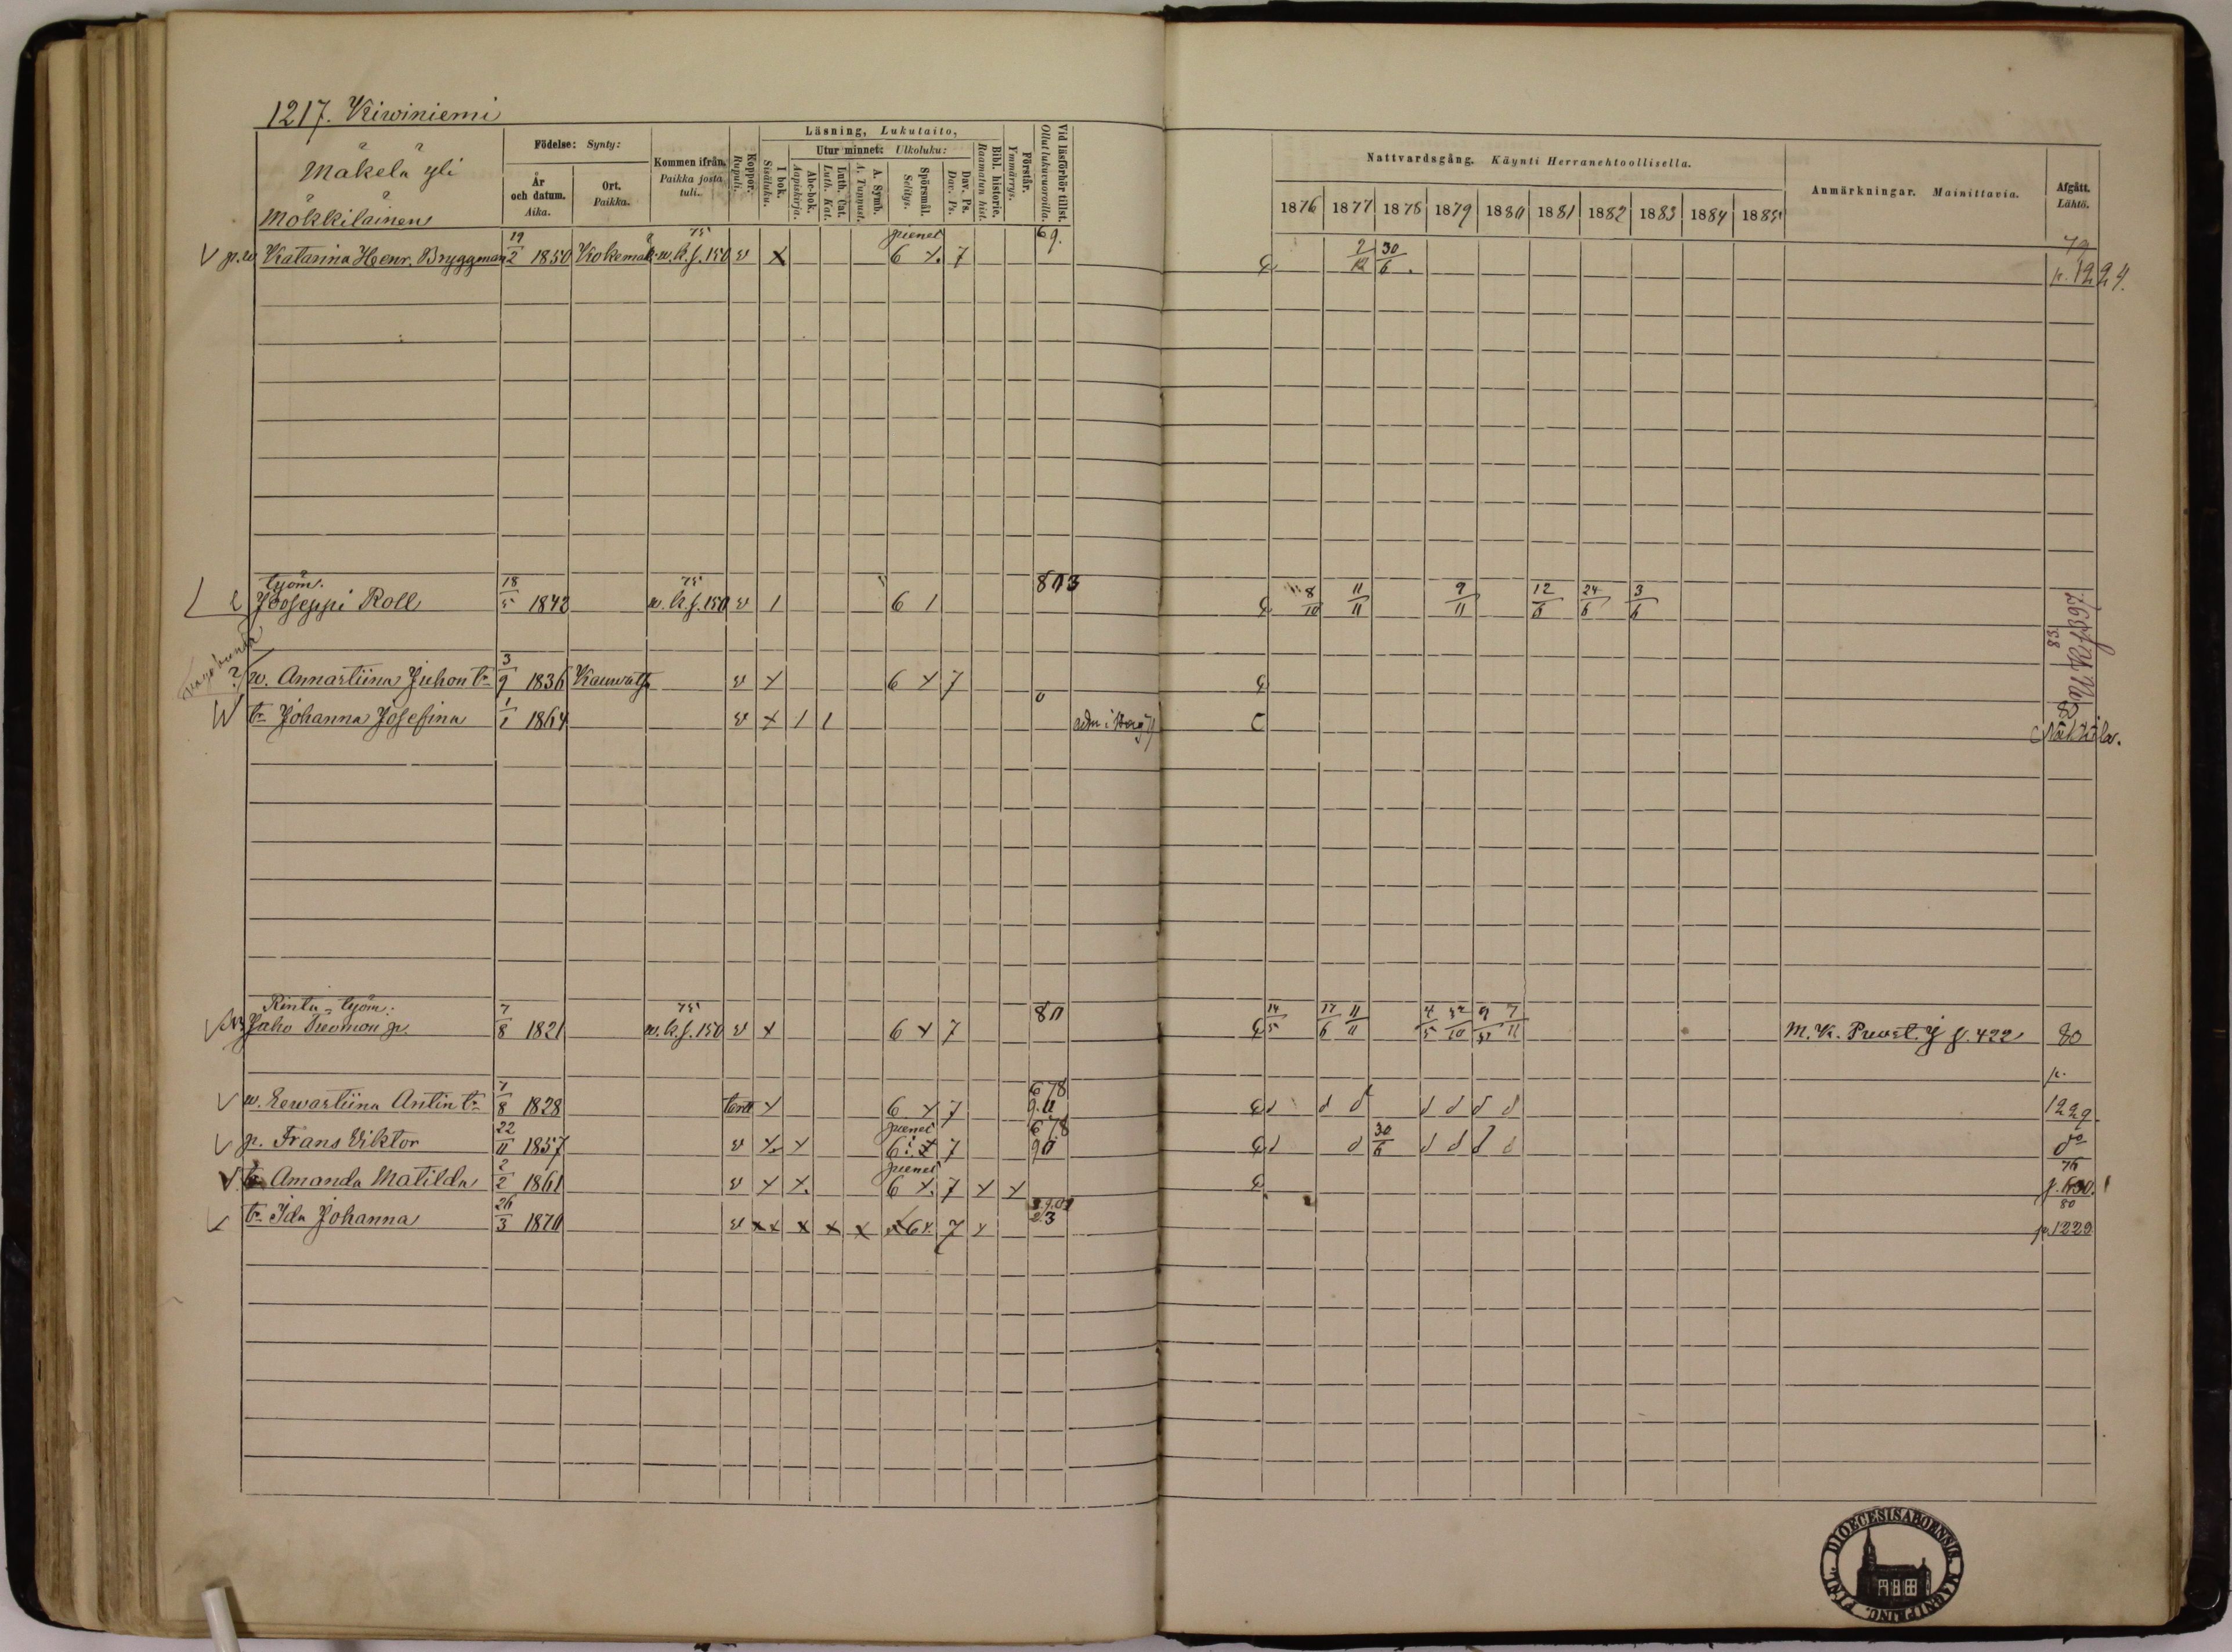 1217. Kiwiniemi
Mäkelä yli
Mökkiläinen
Födelse: Synty:
År och datum. Aika.
Ort. Paikka.
Kommen ifrån. Paikka josta tuli.
Koppor. Rupuli.
Läsning, Lukutaito,
I bok. Sisäluku.
Utur minnet: Ulkoluku:
Abc-bok. Aapiskirja.
Luth. Cat. Luth. Kat.
A. Symb. A. Tunnust.
Spörsmål. Selitys.
Dav. Ps. Dav. Ps.
Bibl. historie. Raamatun hist.
Förstår. Ymmärrys.
Vid läsförhör tillst. Ollut lukuvuoroilla.
Nattvardsgång. Käynti Herranehtoollisella.
1876 1877 1878 1879 1880 1881 1882 1883 1884 1885
Anmärkningar. Mainittavia.
Afgått. Lähtö.
p. w Katarina Henr. Bryggman 19/2 1850 Kokemäk. 75 w. k. s. 150 v x pienet 6 x. 7 69. 2/12 30/6 79 p. 1224.
työm.
Jooseppi Roll 18/5 1842 75 w. k. s. 150 v 1 6 1 803 8/10 11/11 9/11 12/6 24/6 3/6 83
w. Annastiina Juhon tr 3/9 1836 Kauwatsa v x 6 x 7 0
tr Johanna Josefina 1/1 1864 v x 1 1 80 Nakkila.
Rintu-työm.
Juho Tuomon p. 7/8 1821 75 w. k. s. 150 v x 6 x 7 80 14/5 17/6 11/11 M. K. Puust. s. 422 80
w. Eewastiina Antin tr 7/8 1828 x 6 x 7 678 p. 1229.
p. Frans Viktor 22/11 1857 v x. x pienet 6 x 7 678 30/6
tr Amanda Matilda 2/2 1861 v x x. pienet 6 x. 7 x x 76
tr Ida Johanna 26/3 1870 v x x x x x 6 x. 7 x 80 p. 1229.
FINL. DIOECESIS ABOENSIS MAGNI PRINC.